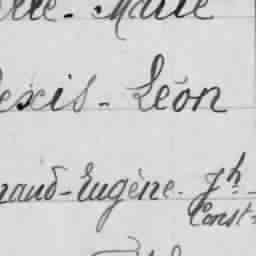 Marie
exis - Léon
naud - Eugène - Jh -
Const